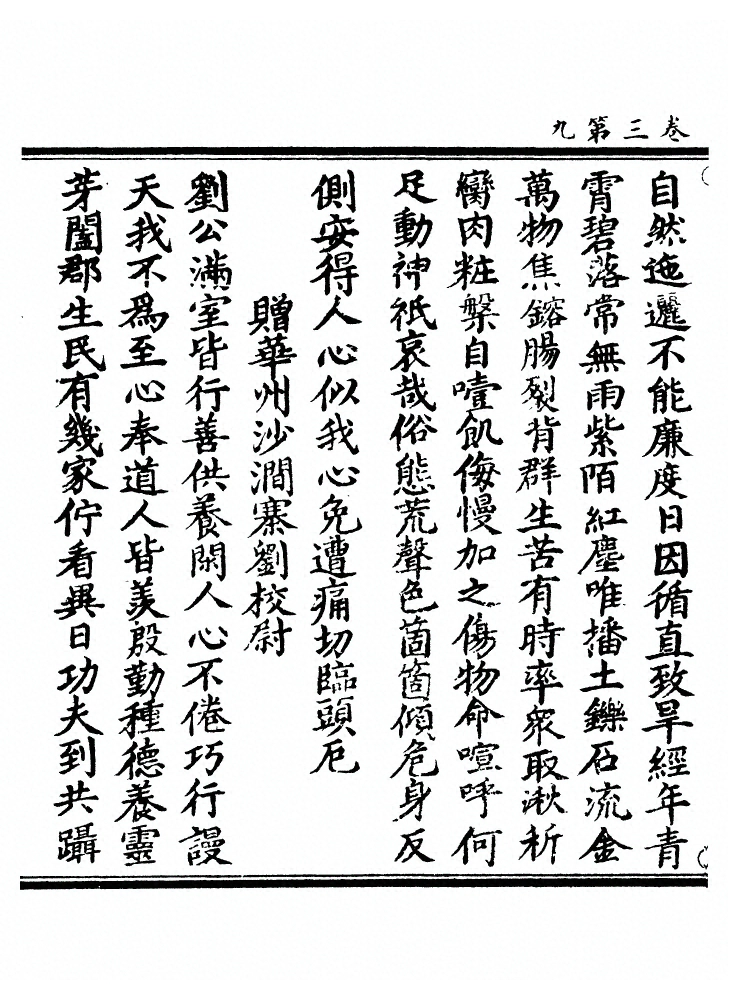 卷三第九
自然迤邐不能廉度日因循直致旱經年青
霄碧落常無雨紫陌紅塵唯播土鑠石流金
萬物焦鎔腸裂背群生苦有時率衆取湫祈
臠肉粧槃自噎飢侮慢加之傷物命喧呼何
足動神祇哀哉俗態荒聲色箇箇傾危身反
側安得人心似我心免遭痛切臨頭厄
贈華州沙澗寨劉校尉
劉公滿室皆行善供養閑人心不倦巧行謾
天我不為至心奉道人皆羨殷勤種德養靈
芽闔郡生民有幾家佇看異日功夫到共躡